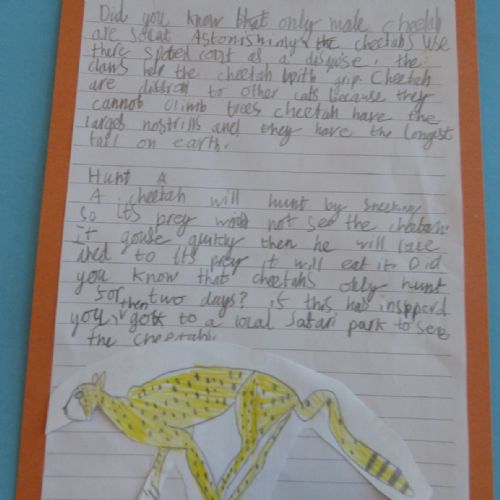 Did you know that only male cheetah
are Astonishinly the cheetahs use
there spoted coat as a disguise. the
claws help the cheetah with grip. Cheetah
are to other cats because they
cannob climb trees cheetah have the
larges nostrills and they have the longest
tail on earth.
Hunt
A cheetah will hunt by sneeking
so its prey not see the cheetah
it quitly then he will
ahed to its prey it will eat it. Did
you know that cheetahs only hunt
for two days? if this has
you then to a local Safari park to see
the cheetah.